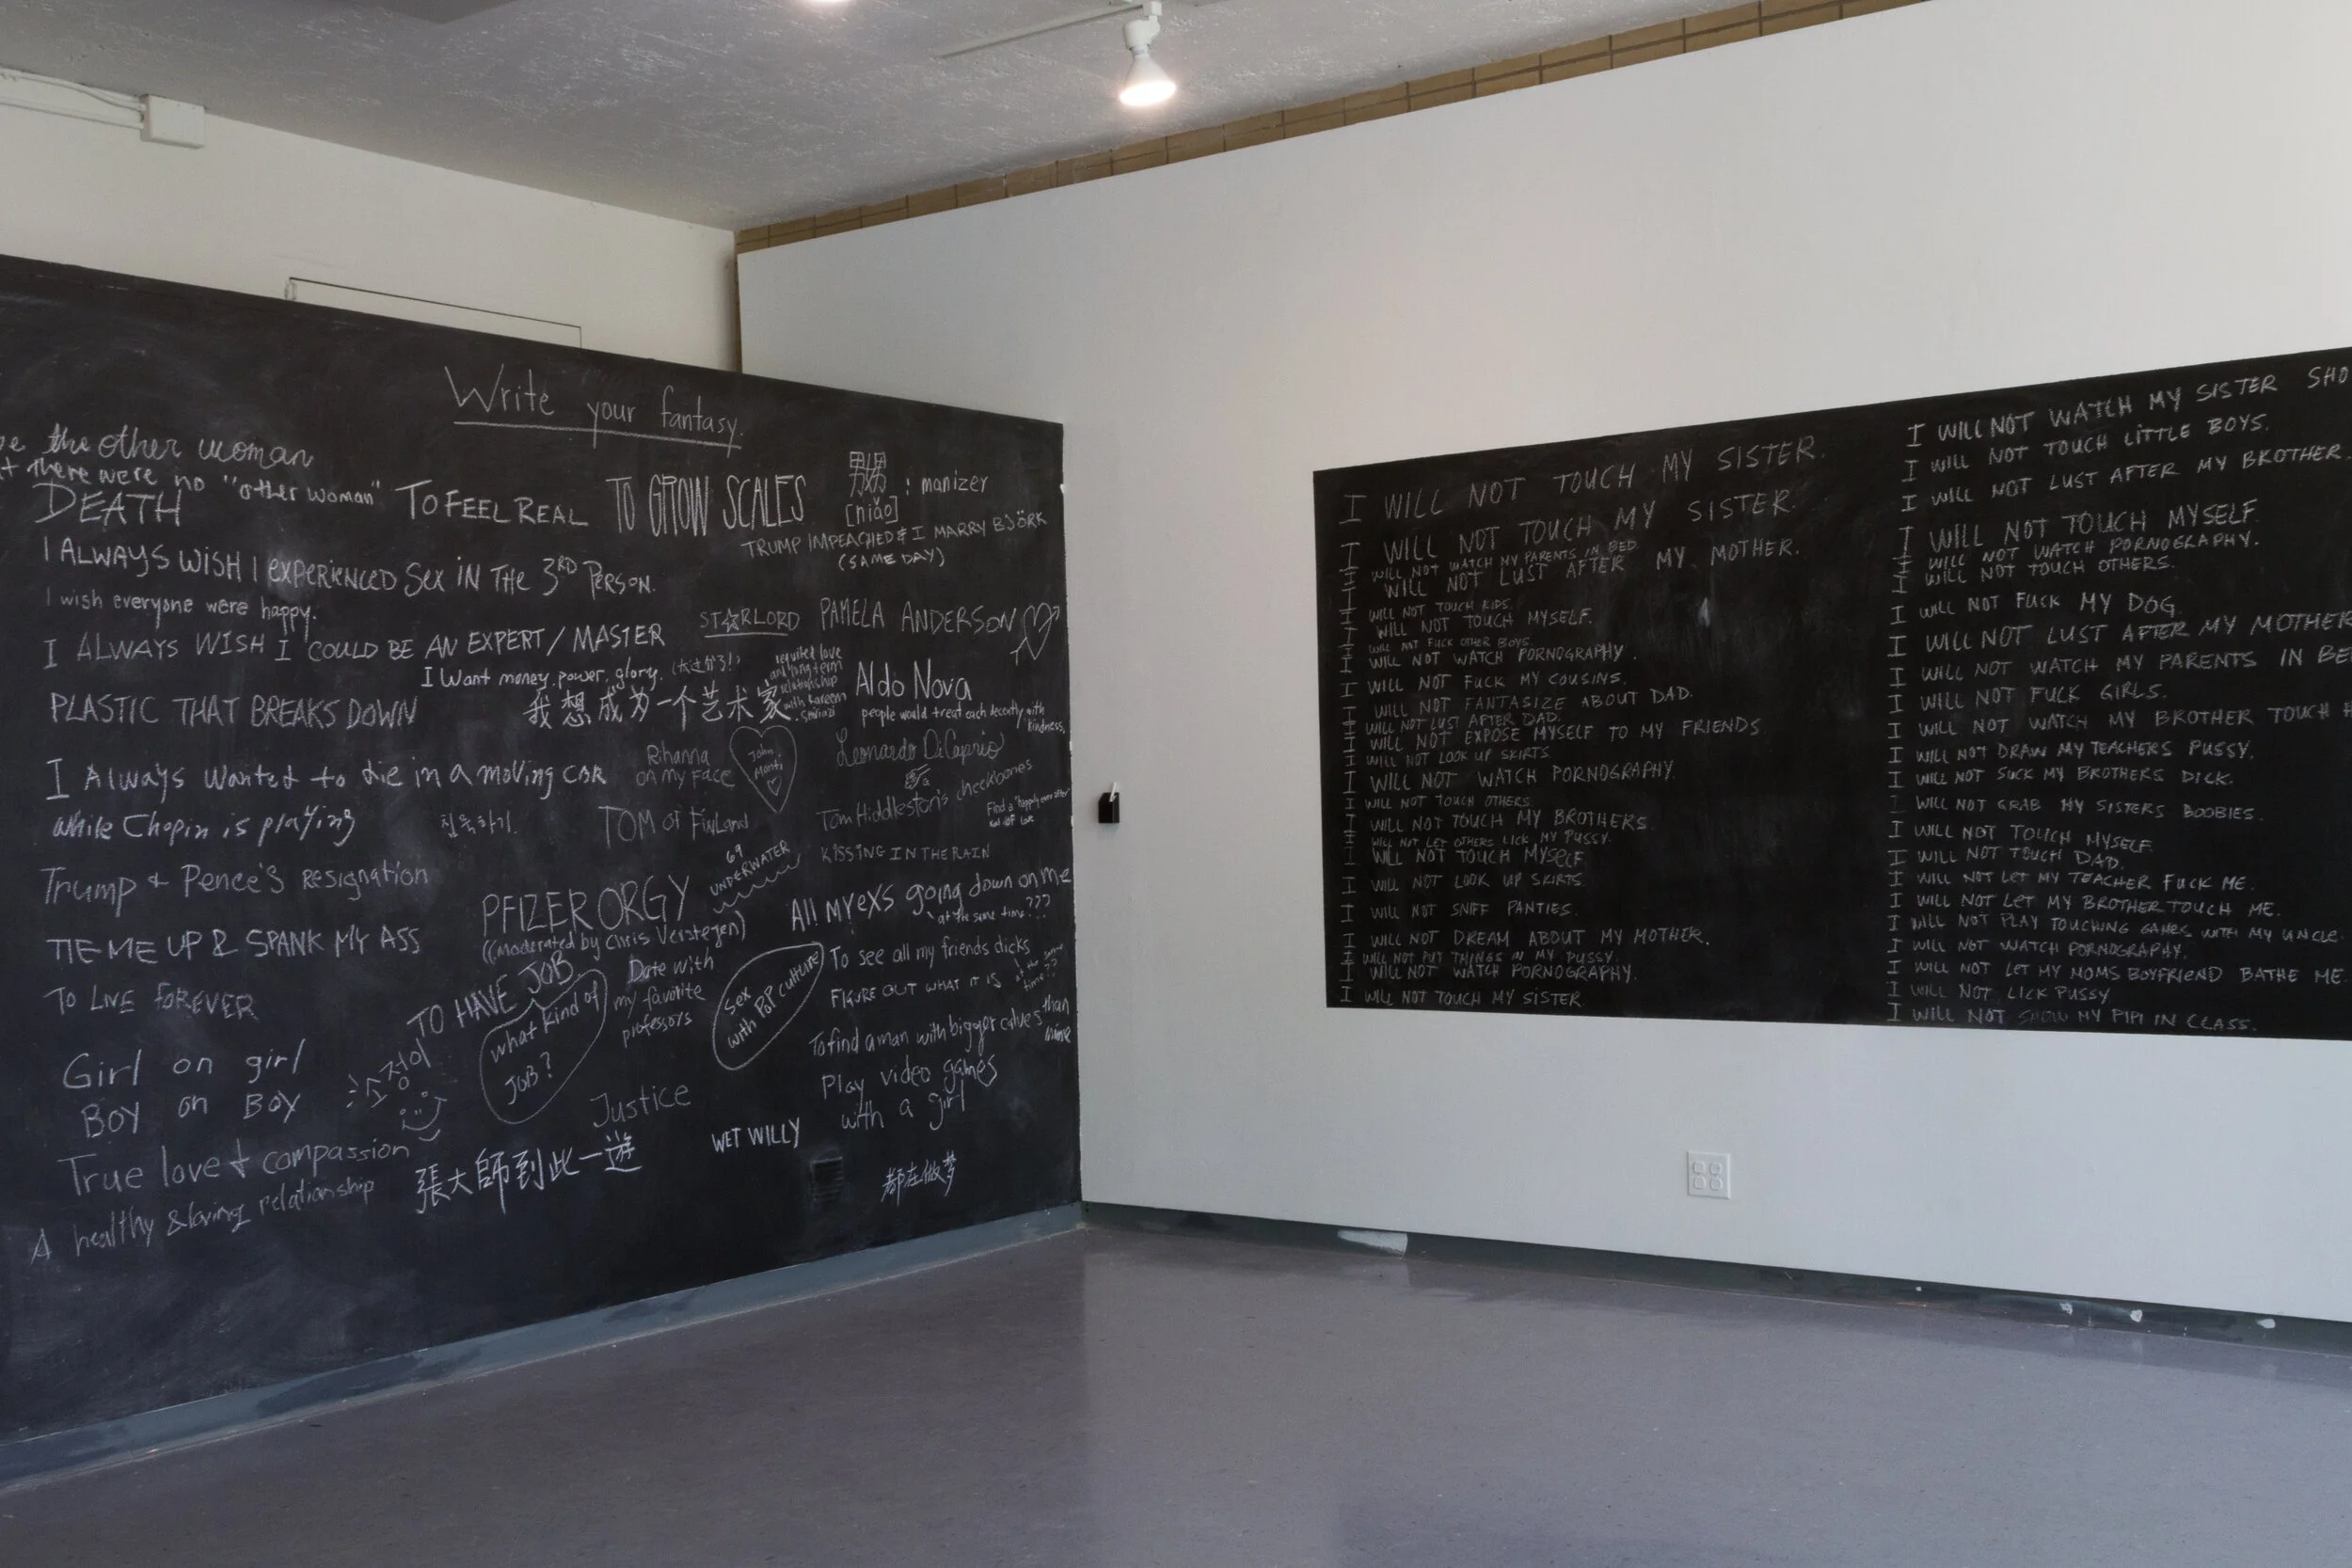 Write your fantasy.
the other woman
there were no "other woman"
DEATH
TO FEEL REAL
TO GROW SCALES
: manizer
[niǎo]
TRUMP IMPEACHED & I MARRY BJÖRK
(SAME DAY)
I ALWAYS WISH I EXPERIENCED SEX IN THE 3RD PERSON.
I wish everyone were happy.
STARLORD
PAMELA ANDERSON
I ALWAYS WISH I COULD BE AN EXPERT/MASTER
I want money, power, glory.
requited love
and long term
relationship
with Kareem
PLASTIC THAT BREAKS DOWN
我想成为一个艺术家
Aldo Nova
people would treat each decently with
kindness.
I Always wanted to die in a moving car
while Chopin is playing
Rihanna
on my face
John
Leonardo DiCaprio
Tom Hiddleston's cheekbones
Find a "happily ever after"
TOM OF FINLAND
KISSING IN THE RAIN
Trump + Pence's resignation
69
UNDERWATER
PFIZER ORGY
(moderated by Chris Verstegen)
All my exs going down on me
at the same time???
TIE ME UP & SPANK MY ASS
To see all my friends dicks
at the same
time??
TO LIVE FOREVER
TO HAVE JOB
what kind of
JOB?
Date with
my favorite
professors
Sex
with POP culture
FIGURE OUT WHAT IT IS
To find a man with bigger calves than
mine
Girl on girl
Boy on Boy
Play video games
with a girl
Justice
WET WILLY
True love + compassion
A healthy & loving relationship
張大師到此一遊
都在做梦
I WILL NOT TOUCH MY SISTER.
I WILL NOT TOUCH MY SISTER.
I WILL NOT WATCH MY PARENTS IN BED
I WILL NOT LUST AFTER MY MOTHER.
I WILL NOT TOUCH KIDS.
I WILL NOT TOUCH MYSELF.
I WILL NOT FUCK OTHER BOYS.
I WILL NOT WATCH PORNOGRAPHY.
I WILL NOT FUCK MY COUSINS.
I WILL NOT FANTASIZE ABOUT DAD.
I WILL NOT LUST AFTER DAD.
I WILL NOT EXPOSE MYSELF TO MY FRIENDS
I WILL NOT LOOK UP SKIRTS
I WILL NOT WATCH PORNOGRAPHY.
I WILL NOT TOUCH OTHERS
I WILL NOT TOUCH MY BROTHERS.
I WILL NOT LET OTHERS LICK MY PUSSY.
I WILL NOT TOUCH MYSELF
I WILL NOT LOOK UP SKIRTS.
I WILL NOT SNIFF PANTIES.
I WILL NOT DREAM ABOUT MY MOTHER.
I WILL NOT PUT THINGS IN MY PUSSY.
I WILL NOT WATCH PORNOGRAPHY.
I WILL NOT TOUCH MY SISTER
I WILL NOT WATCH MY SISTER SHO
I WILL NOT TOUCH LITTLE BOYS.
I WILL NOT LUST AFTER MY BROTHER.
I WILL NOT TOUCH MYSELF
I WILL NOT WATCH PORNOGRAPHY.
I WILL NOT TOUCH OTHERS.
I WILL NOT FUCK MY DOG
I WILL NOT LUST AFTER MY MOTHER
I WILL NOT WATCH MY PARENTS IN BE
I WILL NOT FUCK GIRLS.
I WILL NOT WATCH MY BROTHER TOUCH
I WILL NOT DRAW MY TEACHERS PUSSY.
I WILL NOT SUCK MY BROTHERS DICK.
I WILL NOT GRAB MY SISTERS BOOBIES.
I WILL NOT TOUCH MYSELF
I WILL NOT TOUCH DAD.
I WILL NOT LET MY TEACHER FUCK ME.
I WILL NOT LET MY BROTHER TOUCH ME.
I WILL NOT PLAY TOUCHING GAMES WITH MY UNCLE.
I WILL NOT WATCH PORNOGRAPHY.
I WILL NOT LET MY MOMS BOYFRIEND BATHE ME.
I WILL NOT LICK PUSSY
I WILL NOT SHOW MY PIPI IN CLASS.